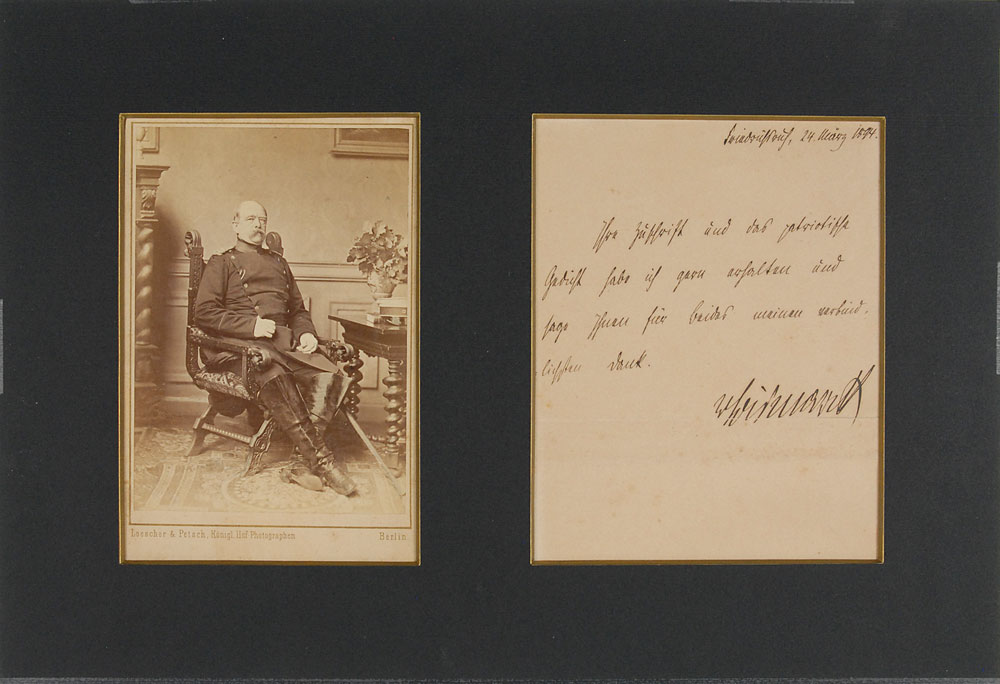 Loescher & Petsch, Königl. Hof Photographen Berlin.
Friedrichsruh, 24. März 1894.
Ihre Zuschrift und das patriotische
Gedicht habe ich gern erhalten und
sage Ihnen für beides meinen verbind-
lichsten Dank.
vBismarck